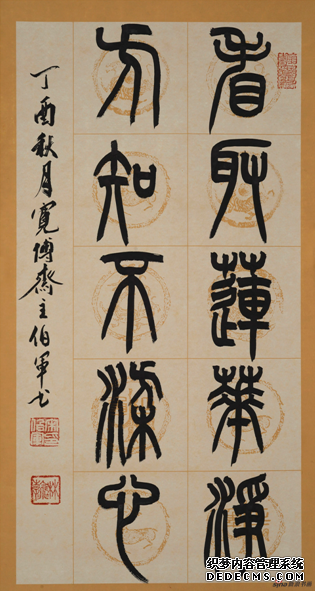 看取蓮華淨
方知不染心
丁酉秋月寬博齋主伯軍书
织梦内容管理系统
DEDECMS.COM